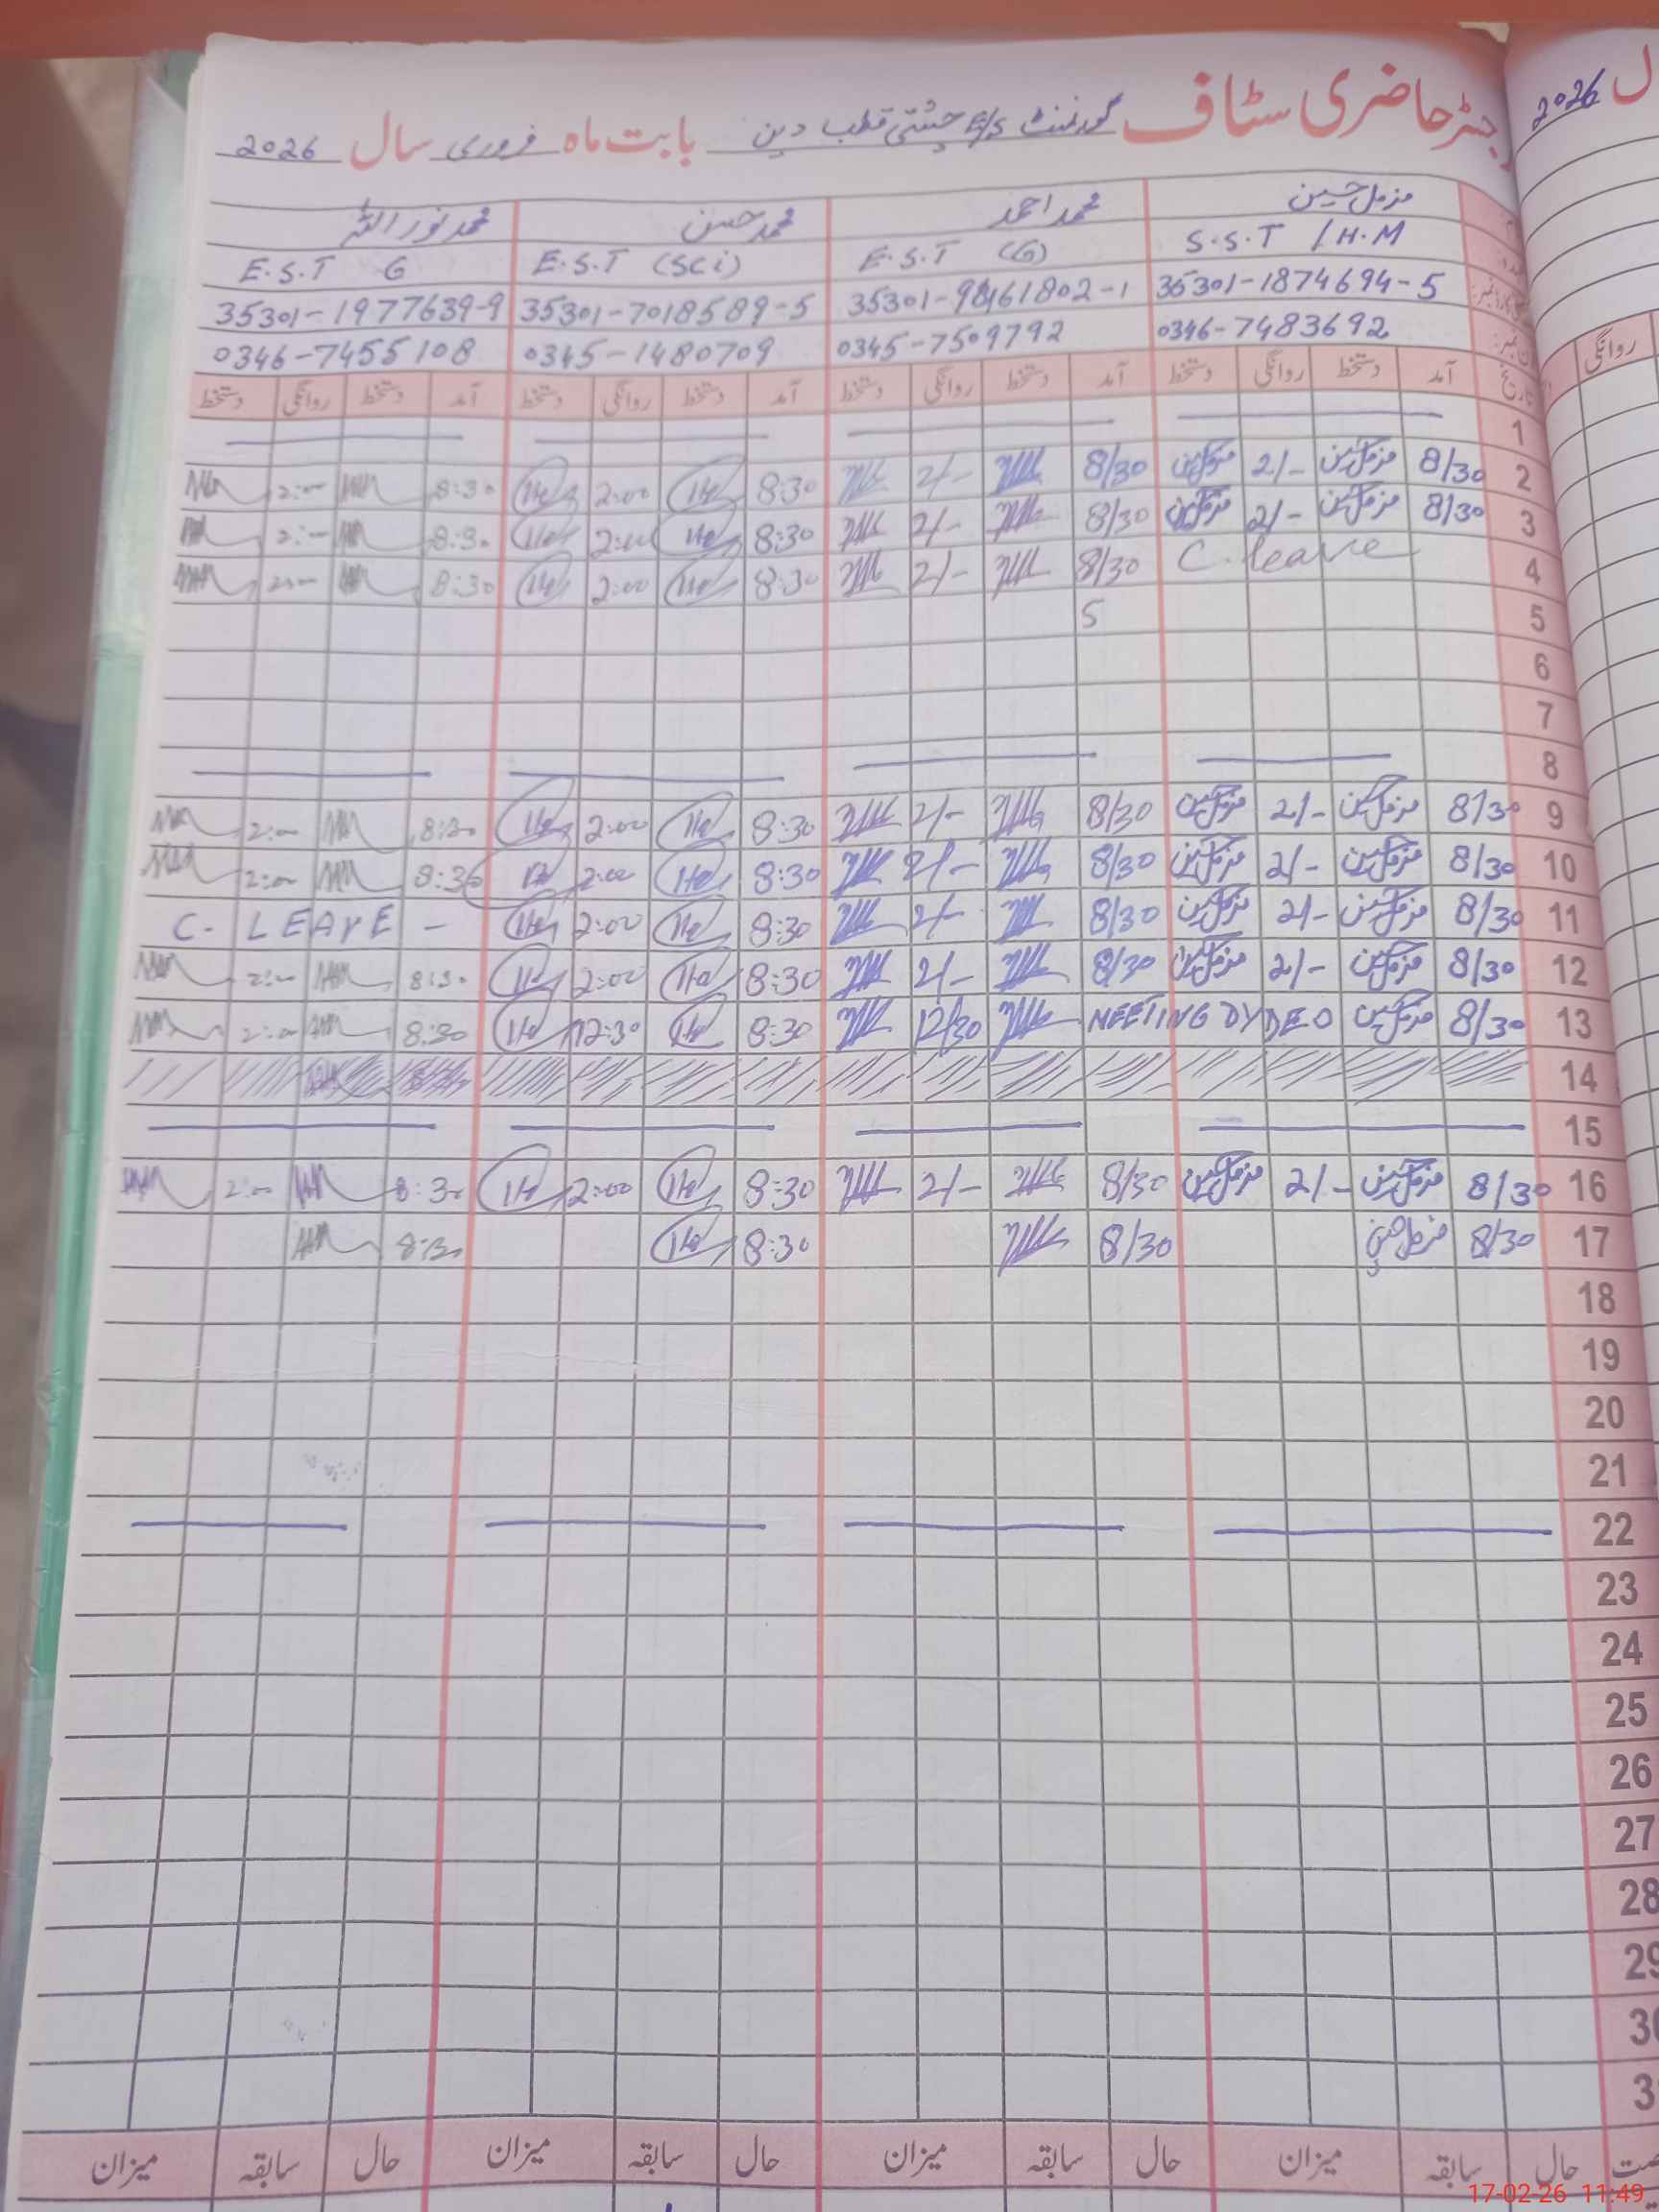 رجسٹر حاضری سٹاف گورنمنٹ E/S چشتی قطب دین بابت ماہ فروری سال 2026
مزمل حسین محمد احمد محمد حسن محمد نور اللہ
S.S.T / H.M E.S.T (G) E.S.T (SCi) E.S.T G
35301-1874694-5 35301-7018589-5 35301-1977639-9
0346-7483692 0345-7509792 0345-1480709 0346-7455108
تاریخ آمد دستخط روانگی دستخط آمد دستخط روانگی دستخط آمد دستخط روانگی دستخط آمد دستخط روانگی دستخط
1
2 8/30 مزمل حسین 2/- مزمل حسین 8/30 2/- 8:30 2:00 8:30 2:00
3 8/30 مزمل حسین 2/- مزمل حسین 8/30 2/- 8:30 2:00 8:30 2:00
4 C. leave 8/30 2/- 8:30 2:00 8:30 2:00
5 5
6
7
8
9 8/30 مزمل حسین 2/- مزمل حسین 8/30 2/- 8:30 2:00 8:30 2:00
10 8/30 مزمل حسین 2/- مزمل حسین 8/30 2/- 8:30 2:00 8:30 2:00
11 8/30 مزمل حسین 2/- مزمل حسین 8/30 2/- 8:30 2:00 C- LEAVE -
12 8/30 مزمل حسین 2/- مزمل حسین 8/30 2/- 8:30 2:00 8:30 2:00
13 8/30 مزمل حسین MEETING DYDEO 12/30 8:30 12:30 8:30 2:00
14
15
16 8/30 مزمل حسین 2/- مزمل حسین 8/30 2/- 8:30 2:00 8:30 2:00
17 8/30 مزمل حسین 8/30 8:30 8:30
18
19
20
21
22
23
24
25
26
27
28
29
حال سابقہ میزان حال سابقہ میزان حال سابقہ میزان حال سابقہ میزان
2026
روانگی
17-02-26 11:49